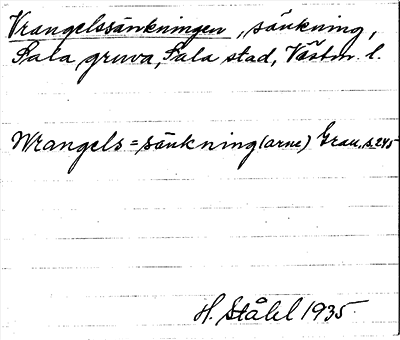 Vrangelssänkningen, sänkning,
Sala gruva, Sala stad, Västm. l.
Wrangels=sänkning(arne) Gran. s. 245
H. Ståhl 1935.